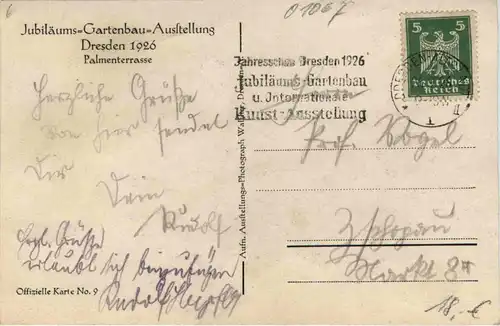 01067
Jubiläums=Gartenbau=Ausstellung
Dresden 1926
Palmenterrasse
Herzliche Grüße
von hier sendet
Dir
Dein
Rudolf
Hzgl. Grüße
erlaubt sich beizufügen
Rudolf
Offizielle Karte No. 9
Aufn. Ausstellungs-Photograph
Jahresschau Dresden 1926
Jubiläums-Gartenbau
u. Internationale
Kunst-Ausstellung
5 5
Deutsches
Reich
DRESDEN
1
Prof. Vogel
Zschopau
Markt 8
18,- €